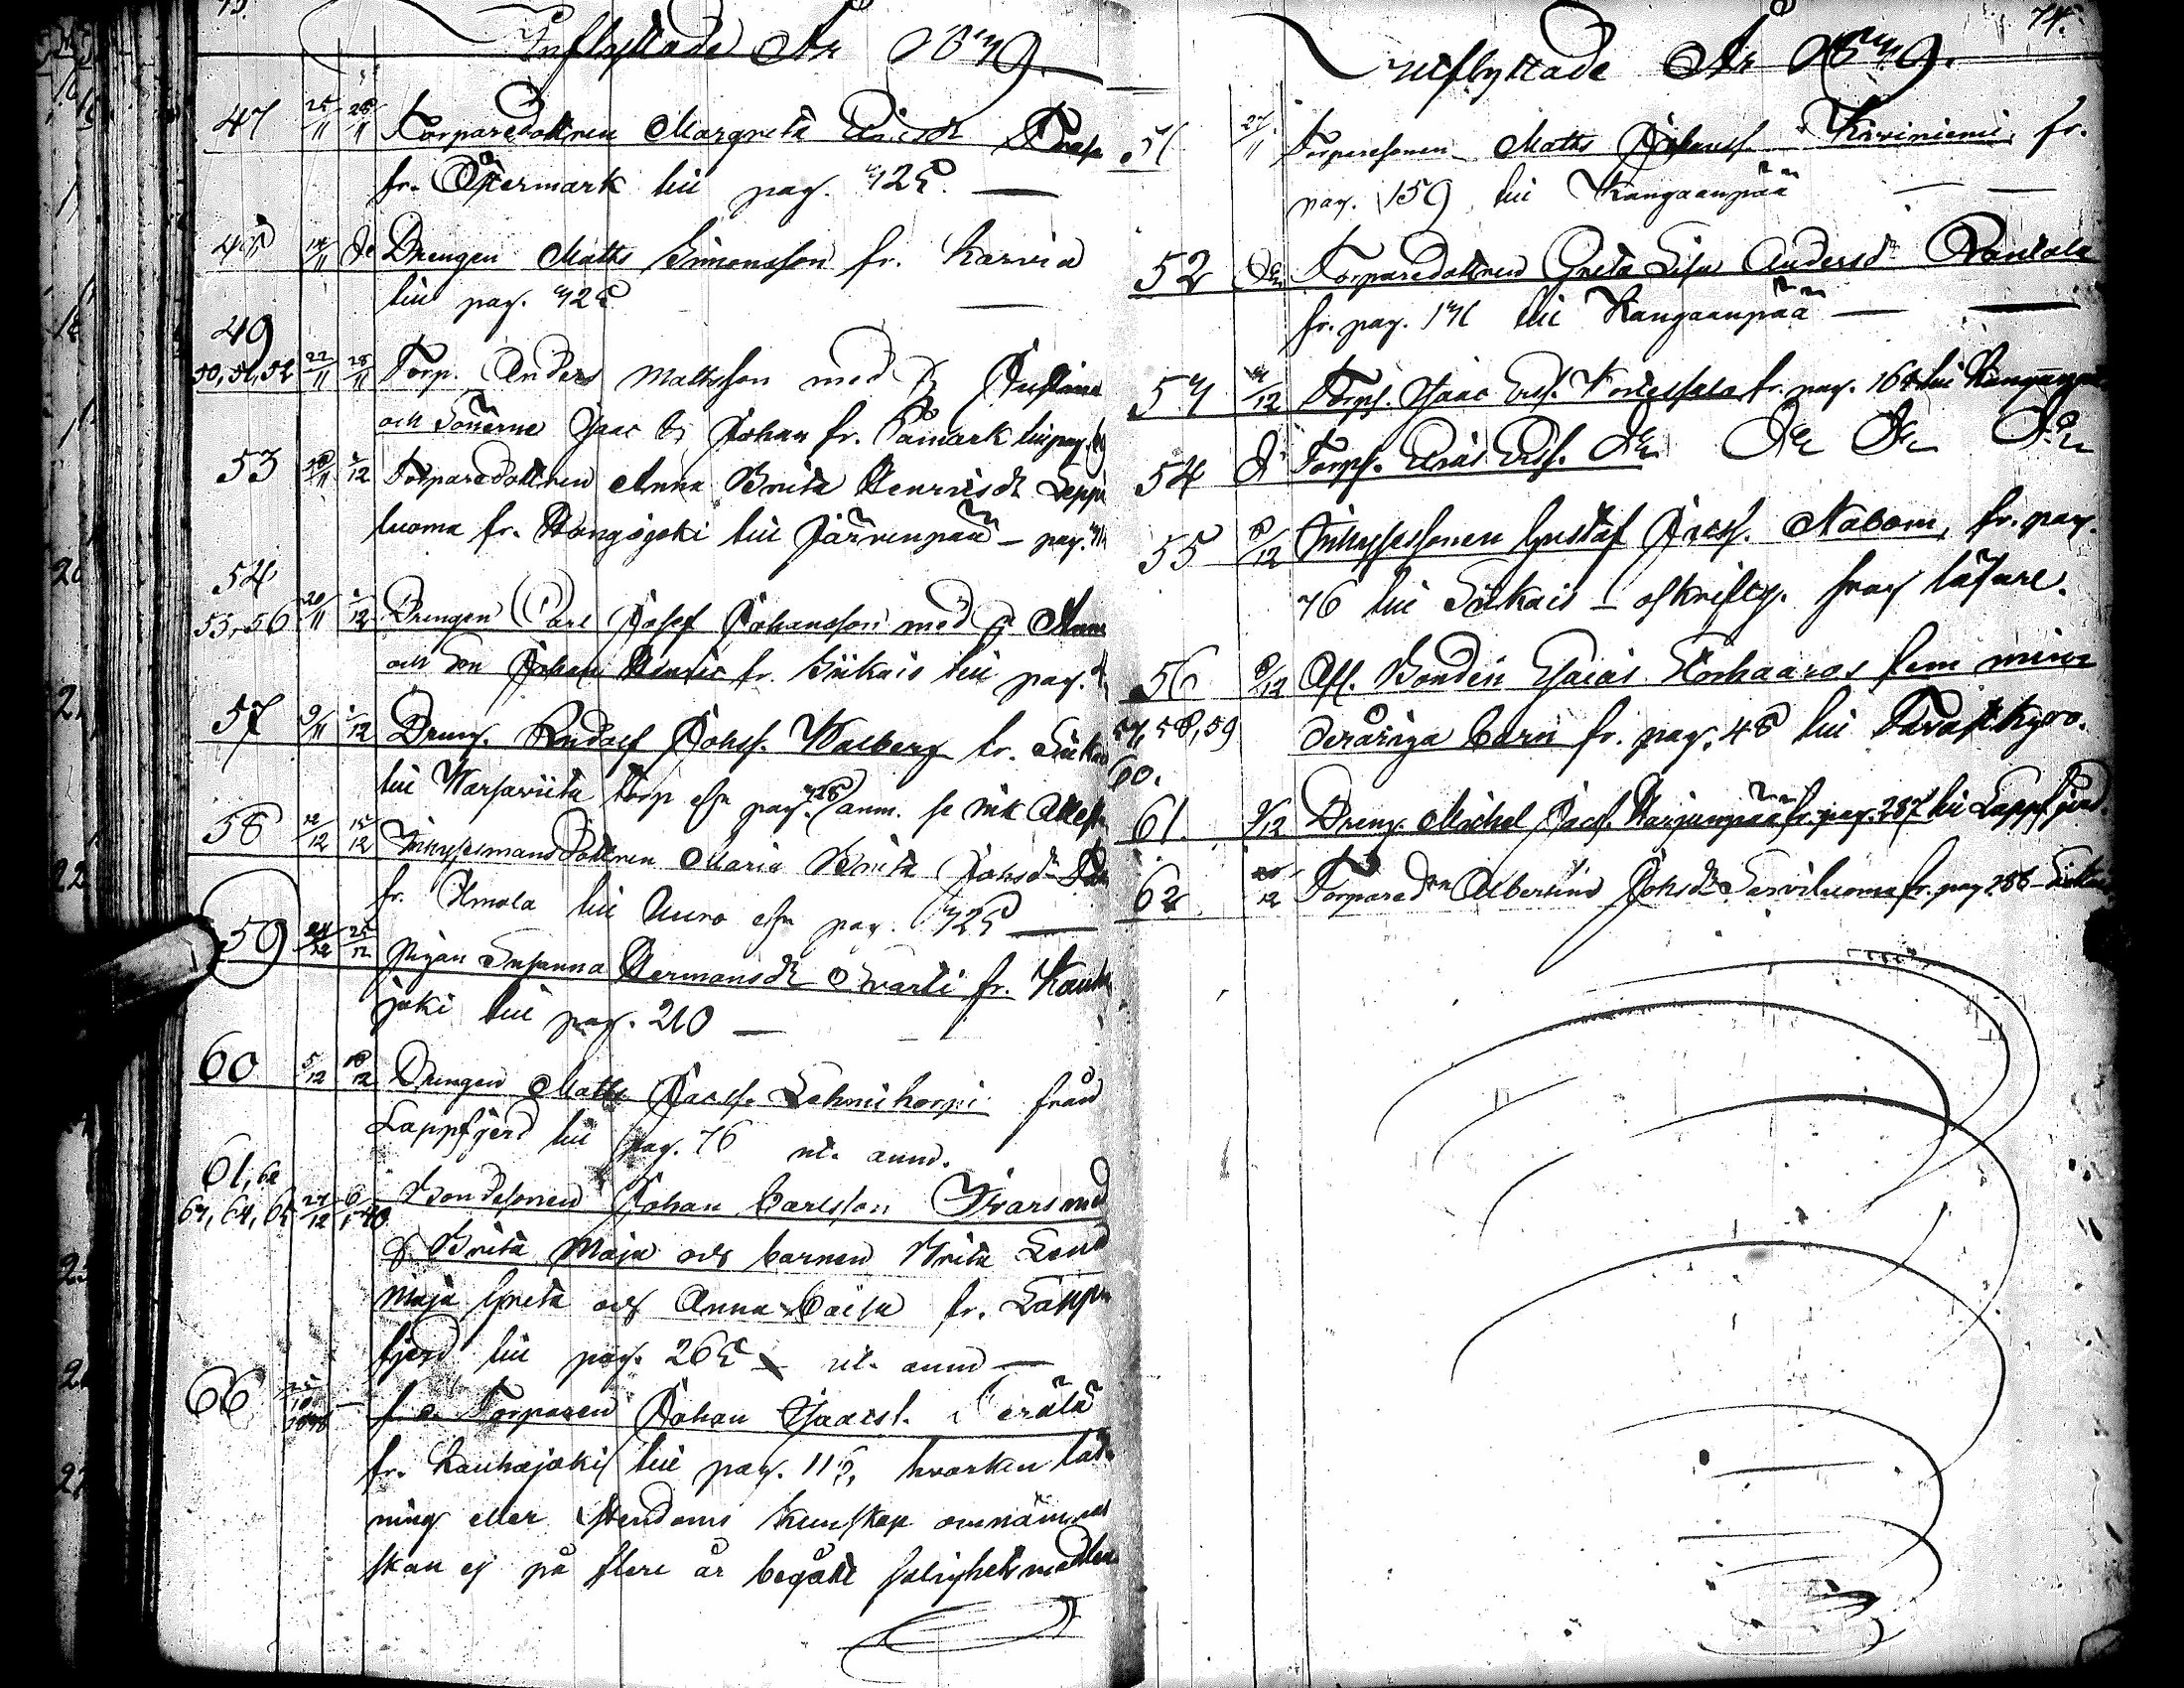 73.
Inflyttade År 1839.
47 25/11 28/11 Torparedottren Margreta Ericsdr
fr. Östermark till pag. 325.
48 14/11 Do Drengen Matts Simonsson fr. Karvia
till pag. 325
49
50, 51, 52 22/11 28/11 Torp. Anders Mattsson med h. Justina
och Sönerne Isaac & Johan fr. Påmark till pag.
53 /11 1/12 Torparedottren Anna Brita Henricsdr Leppi
luoma fr. Kangojoki till Järvenpää - pag.
54
55, 56 20/11 1/12 Drengen Carl Josef Johansson med h. Anna
och Son Johan Henric fr. Siikais till pag.
57 9/11 1/12 Dreng. Rudolf Johss. Walberg fr. Siikais
till Warsaviita torp efr pag. 328 anm. se
58 12/12 15/12 Inhysesmansdottren Maria Brita Johsdr
fr. Ilmola till Auro efr pag. 325
59 24/12 25/12 Pigan Susanna Hermansdr Svarti fr. Kauha
joki till pag. 210
60 5/12 18/12 Drengen Matts Jacss. Lehmikorpi från
Lappfjerd till pag. 76 ut. anm.
61, 62
63, 64, 65 27/12 6/1 40 Bondesonen Johan Carlsson Ivars med
h. Brita Maja och barnen Brita Lena
Maja Greta och Anna Caisa fr. Lapp
fjerd till pag. 265 - ut. anm
66 25/10 1838 - f. d. Torparen Johan Isaacss. Perälä
fr. Kauhajoki till pag. 115, hvarken läs-
ning eller Christendoms kunskap omnämnes
skall ej på flere år begått salighetsmedlen
74.
Utflyttade År 1839.
51 27/11 Torparesonen Matts Johanss. Kiviniemi, fr.
pag. 159 till Kangaanpää
52 Do Torparedottren Greta Lisa Andersdr Rantala
fr. pag. 131 till Kangaanpää
53 /12 Torps. Isaac Erss. fr. pag. 164 till Kangaanpää
54 Do Torps. Elias Erss. Do Do Do Do
55 8/12 Inhysessonen Gustaf Jacss. Nabom, fr. pag.
76 till Siikais - oskriftg. svag läsare.
56 8/12 Afl. Bonden Esaias Korhaaros fem minder-
57, 58, 59 deråriga barn fr. pag. 48 till Tavastkyro.
60.
61. 9/12 Dreng. Michel Jacss. Harjunpää fr. pag. 287 till Lappfjerd.
62. 20/12 Torpared:n Albertina Johsdr Sarviluoma fr. pag. 286 - Siikais